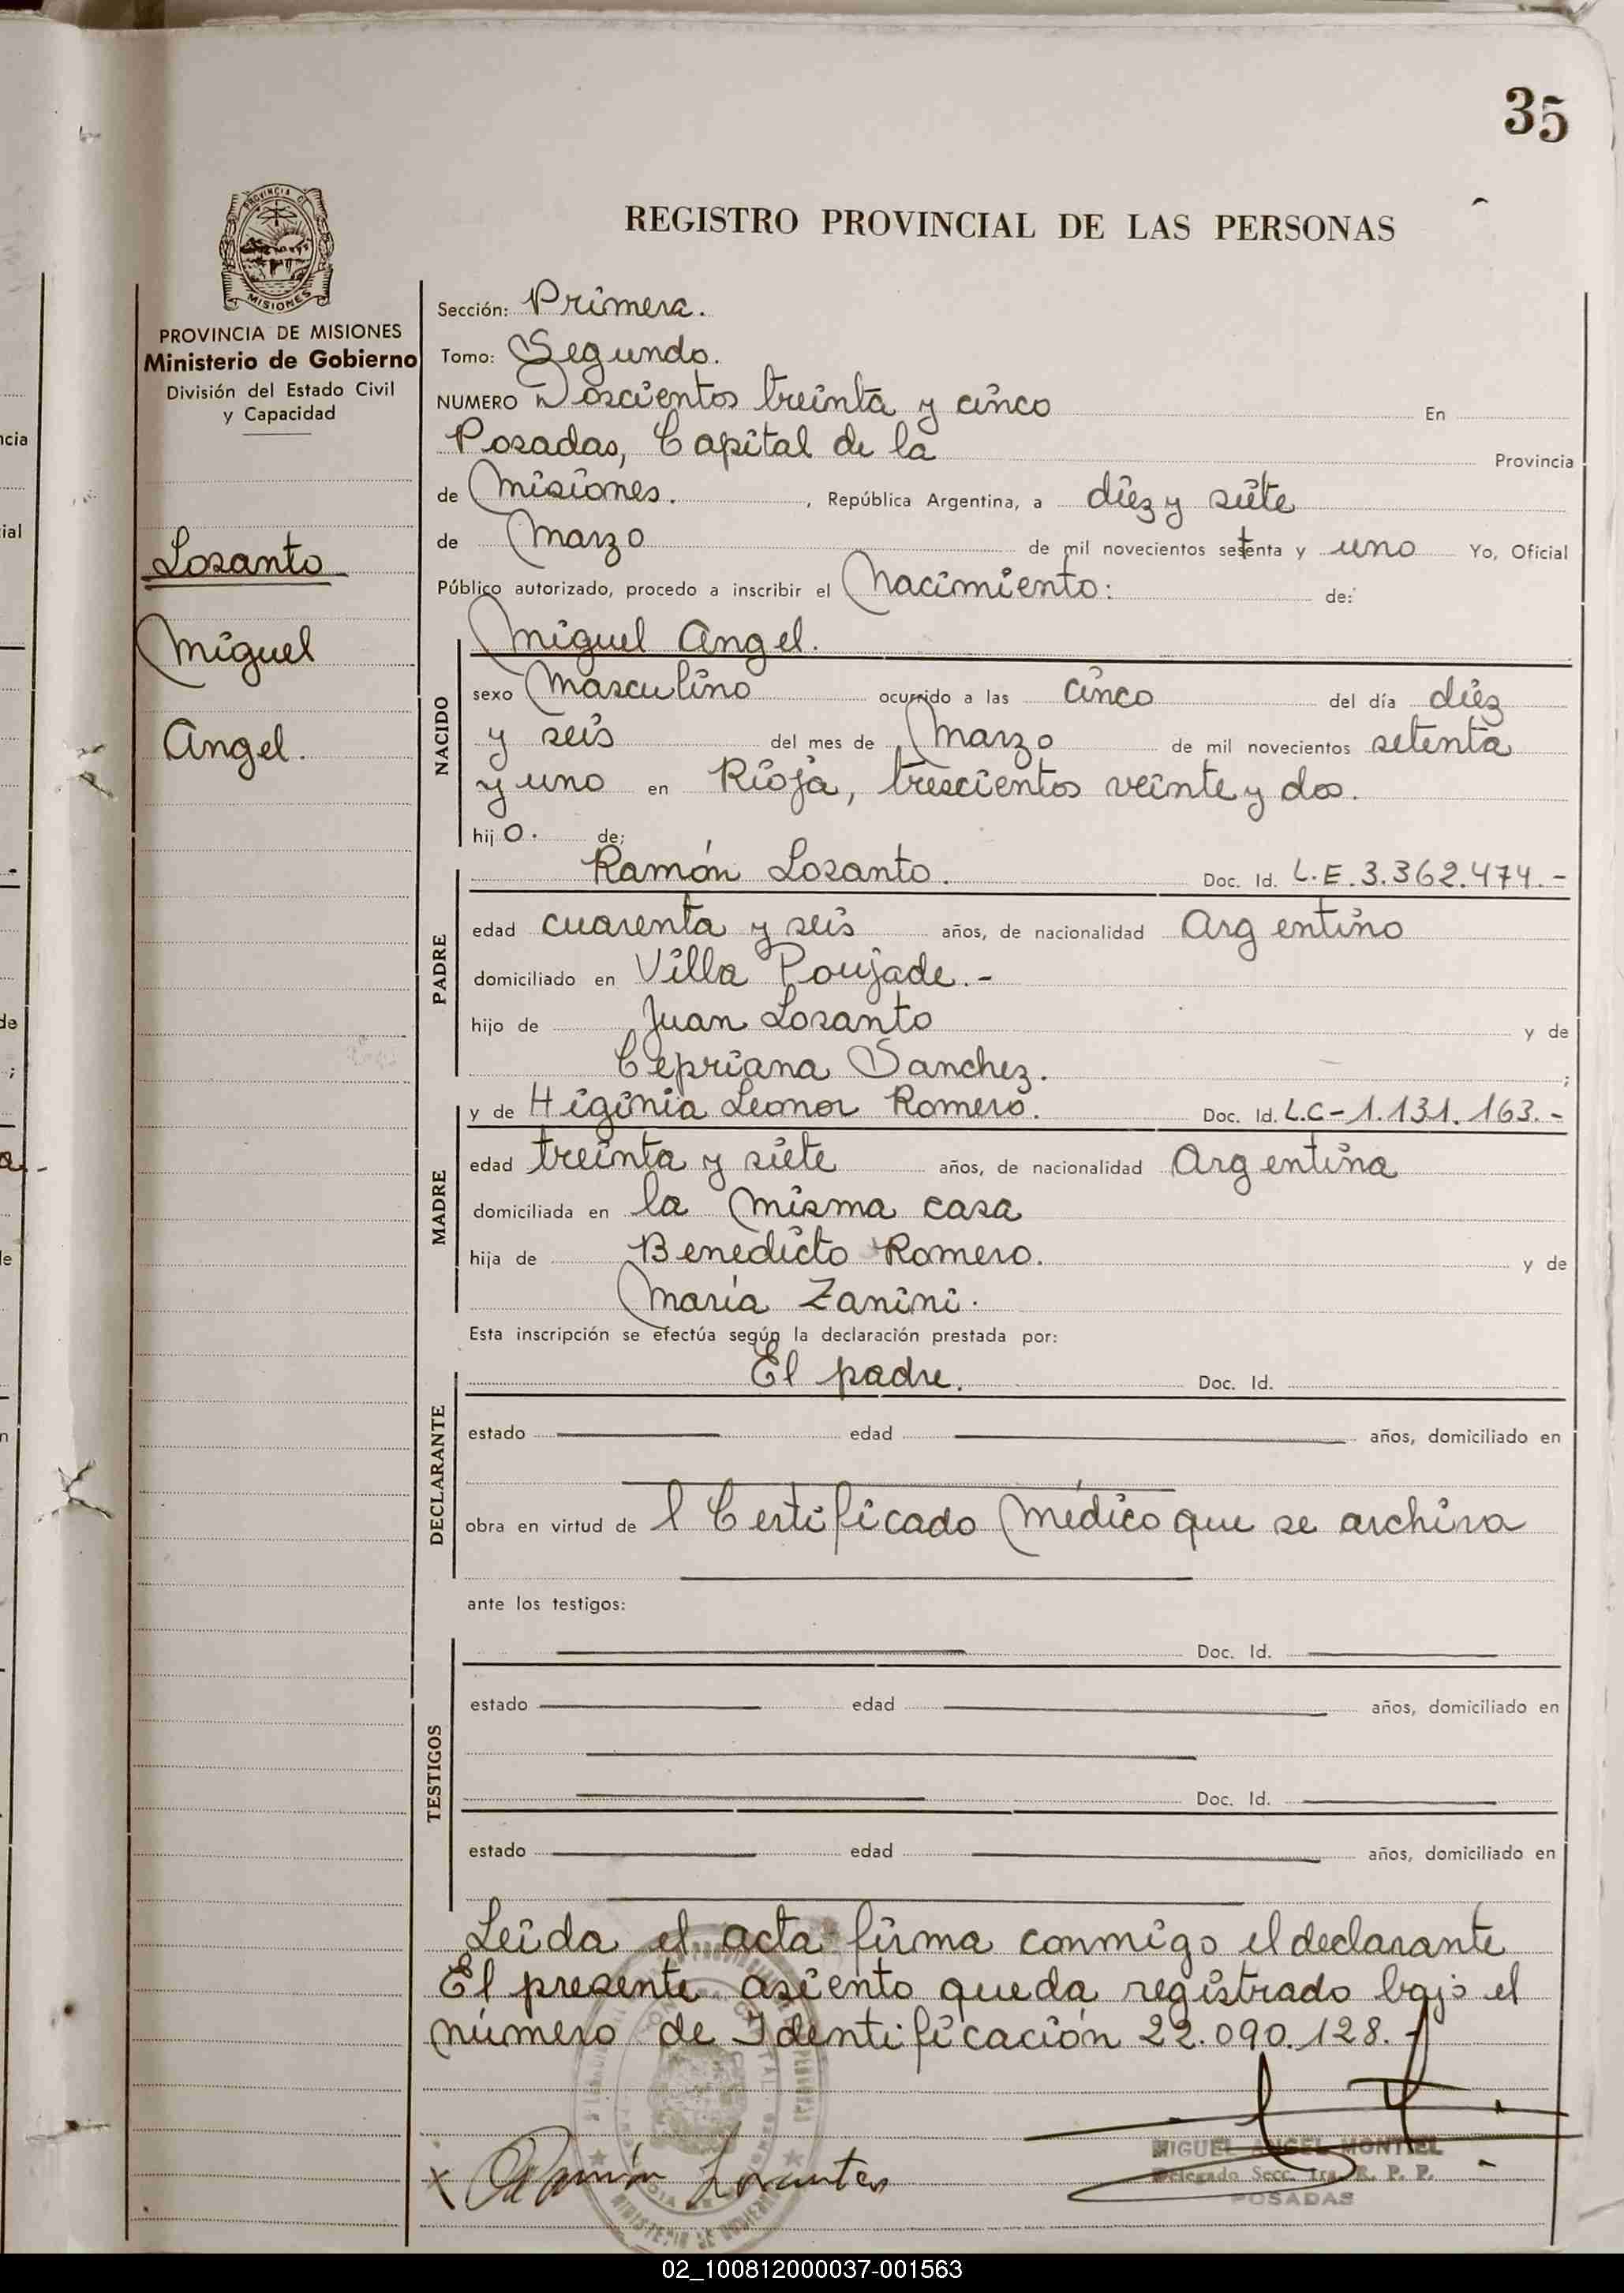 35
REGISTRO PROVINCIAL DE LAS PERSONAS
PROVINCIA DE MISIONES
Ministerio de Gobierno
División del Estado Civil
y Capacidad
Losanto
Miguel
Angel.
Sección: Primera.
Tomo: Segundo.
NUMERO Doscientos treinta y cinco En
Posadas, Capital de la Provincia
de Misiones. , República Argentina, a diez y siete
de Marzo de mil novecientos setenta y uno Yo, Oficial
Público autorizado, procedo a inscribir el Nacimiento: de:
NACIDO
Miguel Angel.
sexo Masculino ocurrido a las cinco del día diez
y seis del mes de Marzo de mil novecientos setenta
y uno en Rioja, trescientos veinte y dos.
hijo. de:
PADRE
Ramón Losanto. Doc. Id. L.E.3.362.474.-
edad cuarenta y seis años, de nacionalidad Argentino
domiciliado en Villa Poujade.-
hijo de Juan Losanto y de
Cepriana Sanchez. ;
MADRE
y de Higinia Leonor Romero. Doc. Id. L.C-1.131.163.-
edad treinta y siete años, de nacionalidad Argentina
domiciliada en la misma casa
hija de Benedicto Romero. y de
María Zanini.
Esta inscripción se efectúa según la declaración prestada por:
DECLARANTE
El padre. Doc. Id.
estado edad años, domiciliado en
obra en virtud de l Certificado Médico que se archiva
ante los testigos:
TESTIGOS
Doc. Id.
estado edad años, domiciliado en
Doc. Id.
estado edad años, domiciliado en
Leida el acta firma conmigo el declarante
El presente asiento queda registrado bajo el
número de Identificación 22.090.128.-
x Ramón Losanto
MIGUEL ANGEL MONTIEL
Delegado Secc. 1ra. R. P. P.
POSADAS
02_100812000037-001563